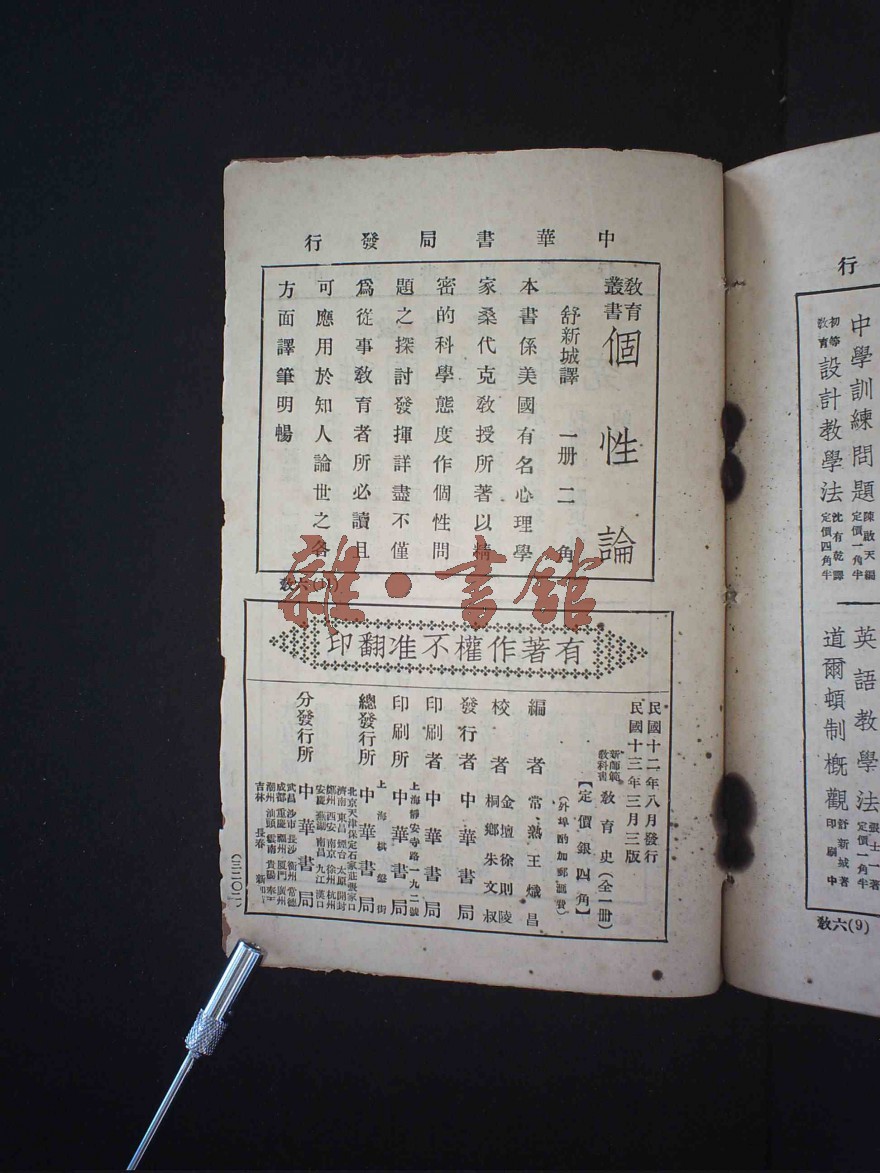 行發局書華中
教育叢書 個性論
舒新城譯 一册 二角
本書係美國有名心理學
家桑代克教授所著以精
密的科學態度作個性問
題之探討發揮詳盡不僅
爲從事教育者所必讀且
可應用於知人論世之各
方面譯筆明暢
教六
雜·書館
印翻准不權作著有
民國十二年八月發行
民國十三年三月三版
新師範教科書 教育史(全一冊)
【定價銀四角】
(外埠酌加郵匯費)
編者 常熟王熾昌
校者 金壇徐則陵 桐鄉朱文叔
發行者 中華書局
印刷者 中華書局
印刷所 上海靜安寺路一九二號 中華書局
總發行所 上海棋盤街 中華書局
分發行所 中華書局
北京天津保定石家莊張家口
濟南東昌煙台太原開封
鄭州西安南京徐州杭州
安慶蕪湖南昌九江漢口
武昌沙市長沙衡州常德
成都重慶福州厦門廣州
潮州汕頭雲南貴陽
吉林長春
行
中學訓練問題 陳啟天編 定價一角半
初等教育 設計教學法 沈有乾譯 定價四角半
英語教學法 張士一著
道爾頓制概觀 舒新城著 印刷中
教六(9)